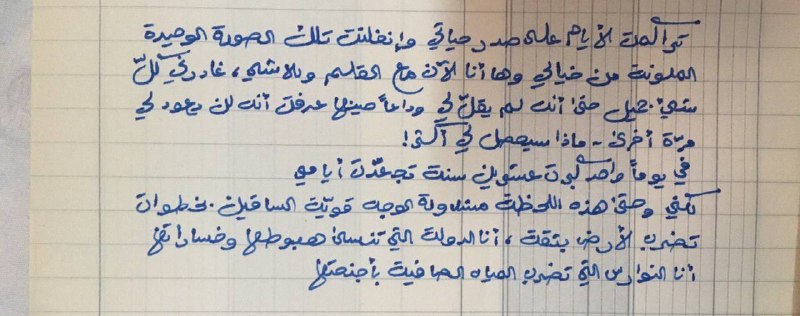 تراكمت الأيام على صدر حياتي وإنفلتت تلك الصورة الوحيدة
الملونة من خيالي وها أنا الآن مع القلم وبلا شيء، غادرني كلّ
شيء جميل حتى أنه لم يقلّ لي وداعاً حينها عرفت أنه لن يعود لي
مرّة أخرى - ماذا سيحصل لي أكثر!
في يوماً واحد كبرت عشرين سنة تجعّدت أيامي
لكني وحتى هذه اللحظة مستديرة الوجه قويّة الساقين بخطوات
تضرب الأرض بثقة، أنا الدولة التي تنسى هبوطها وخساراتها
أنا النوارس التي تضرب المياه الصافية بأجنحتها